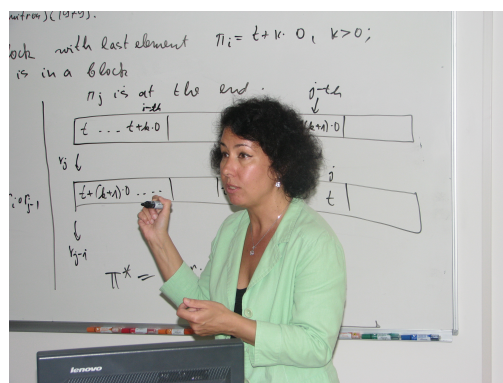 ock with last element πi = t+k·0, k>0;
is in a block
πj is at the end.
i-th j-th
t ... t+k·0 (k+1)·0
rj
t+(k+1)·0 .... j t
rj-i
π* =
lenovo